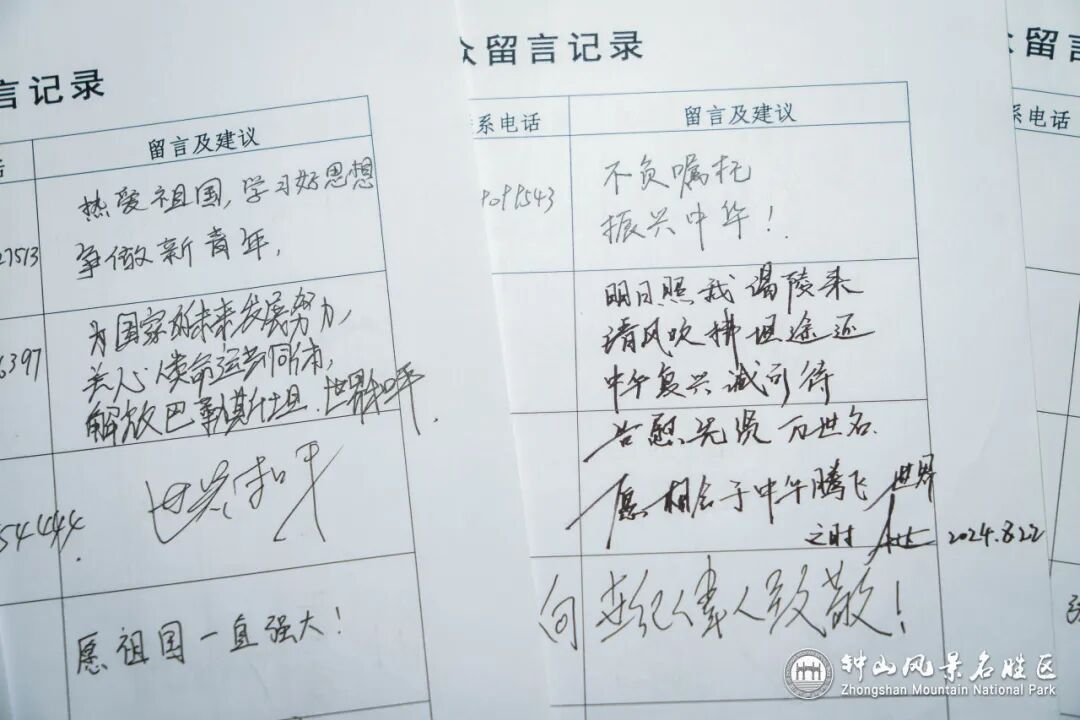 言记录
留言及建议
27513
热爱祖国,学习好思想
争做新青年,
6397
为国家的未来发展努力,
关心人类命运共同体,
解放巴勒斯坦.世界和平.
54444.
世界和平
愿祖国一直强大!
众留言记录
联系电话
留言及建议
9091543
不负嘱托
振兴中华!
明日照我谒陵来
清风吹拂坦途还
中华复兴诚可待
告慰先贤万世名.
愿相会于中华腾飞世界
之时
2024.8.22
向世纪伟人致敬!
留言
系电话
钟山风景名胜区
Zhongshan Mountain National Park